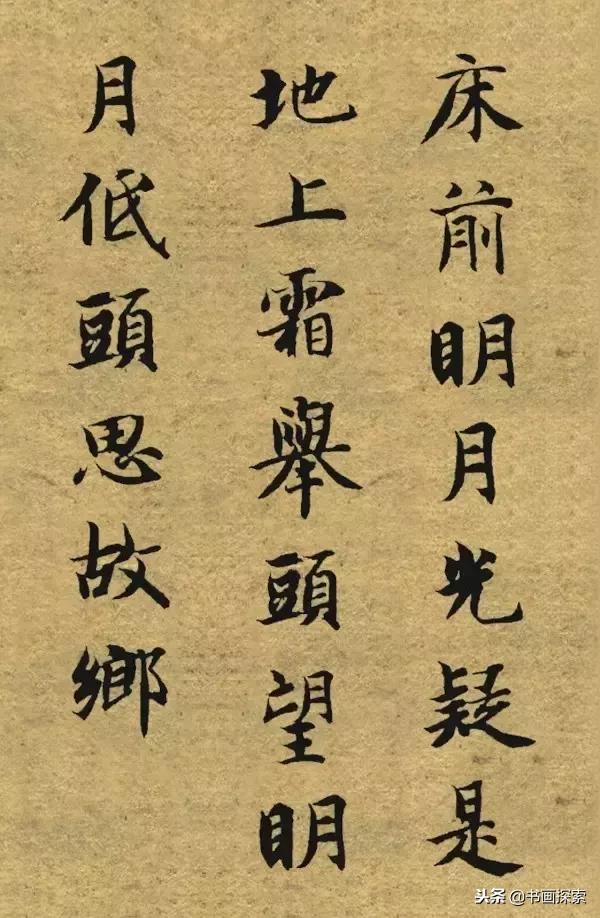 床前明月光疑是
地上霜舉頭望明
月低頭思故鄉
头条@书画探索